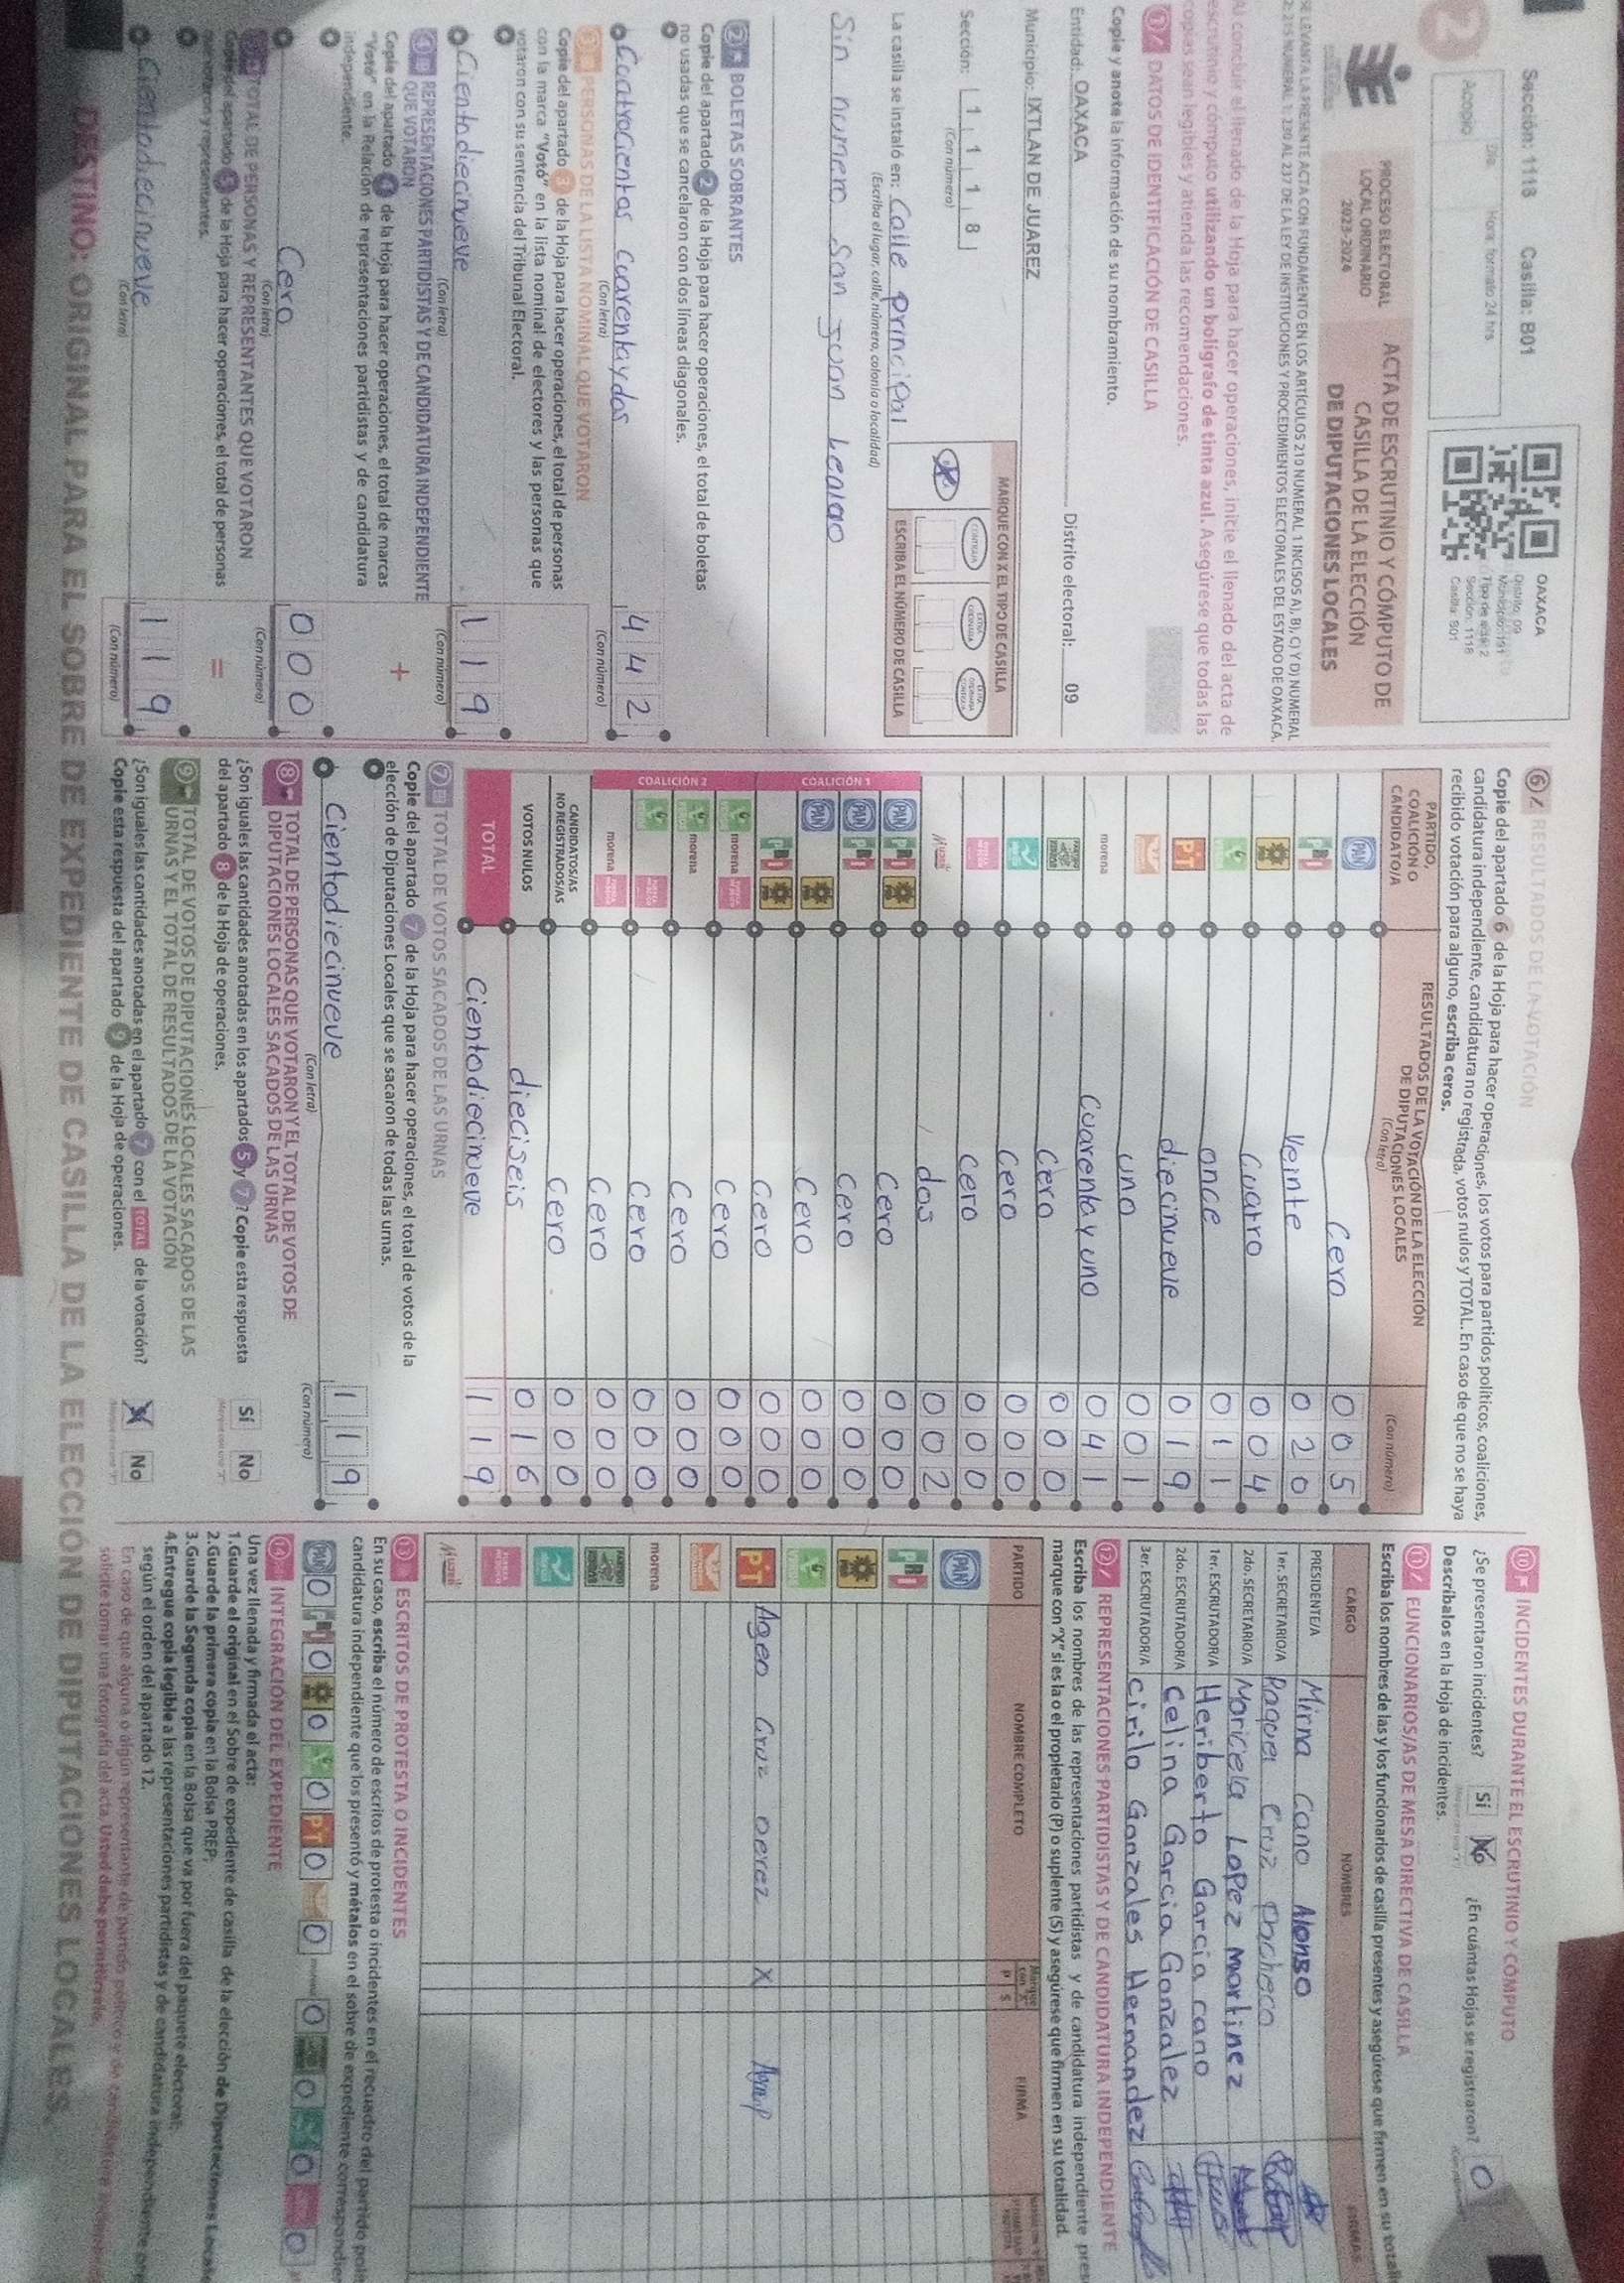 Sección: 1118 Casilla: B01
Día Hora: formato 24 hrs
Acopio
2
OAXACA
Distrito: 09
Tipo de acta: 2
Sección: 1118
Casilla: B01
PROCESO ELECTORAL
LOCAL ORDINARIO
2023-2024
ACTA DE ESCRUTINIO Y CÓMPUTO DE
CASILLA DE LA ELECCIÓN
DE DIPUTACIONES LOCALES
SE LEVANTA LA PRESENTE ACTA CON FUNDAMENTO EN LOS ARTÍCULOS 210 NUMERAL 1 INCISOS A), B), C) Y D) NUMERAL
2; 215 NUMERAL 1; 230 AL 237 DE LA LEY DE INSTITUCIONES Y PROCEDIMIENTOS ELECTORALES DEL ESTADO DE OAXACA.
Al concluir el llenado de la Hoja para hacer operaciones, inicie el llenado del acta de
escrutinio y cómputo utilizando un bolígrafo de tinta azul. Asegúrese que todas las
copias sean legibles y atienda las recomendaciones.
1 DATOS DE IDENTIFICACIÓN DE CASILLA
Copie y anote la información de su nombramiento.
Entidad: OAXACA Distrito electoral: 09
Municipio: IXTLAN DE JUAREZ
Sección: 1 1 1 8
(Con número)
MARQUE CON X EL TIPO DE CASILLA
CONTIGUA
ESCRIBA EL NÚMERO DE CASILLA
La casilla se instaló en: Calle principal
(Escriba el lugar, calle, número, colonia o localidad)
Sin numero San Juan
2 BOLETAS SOBRANTES
Copie del apartado 2 de la Hoja para hacer operaciones, el total de boletas
no usadas que se cancelaron con dos líneas diagonales.
Cuatrocientos cuarenta y dos 4 4 2
(Con letra) (Con número)
3 PERSONAS DE LA LISTA NOMINAL QUE VOTARON
Copie del apartado 3 de la Hoja para hacer operaciones, el total de personas
con la marca "Votó" en la lista nominal de electores y las personas que
votaron con su sentencia del Tribunal Electoral.
Cientodiecinueve 1 1 9
(Con letra) (Con número)
4 REPRESENTACIONES PARTIDISTAS Y DE CANDIDATURA INDEPENDIENTE
QUE VOTARON
Copie del apartado 4 de la Hoja para hacer operaciones, el total de marcas
"Votó" en la Relación de representaciones partidistas y de candidatura
independiente.
+
Cero 0 0 0
(Con letra) (Con número)
TOTAL DE PERSONAS Y REPRESENTANTES QUE VOTARON
Copie del apartado 5 de la Hoja para hacer operaciones, el total de personas
que votaron y representantes.
=
Cientodiecinueve 1 1 9
(Con letra) (Con número)
6 RESULTADOS DE LA VOTACIÓN
Copie del apartado 6 de la Hoja para hacer operaciones, los votos para partidos políticos, coaliciones,
candidatura independiente, candidatura no registrada, votos nulos y TOTAL. En caso de que no se haya
recibido votación para alguno, escriba ceros.
PARTIDO,
COALICIÓN O
CANDIDATO/A
RESULTADOS DE LA VOTACIÓN DE LA ELECCIÓN
DE DIPUTACIONES LOCALES
(Con letra)
(Con número)
PAN Cero 0 0 5
PRI Veinte 0 2 0
PRD Cuatro 0 0 4
VERDE once 0 1 1
PT diecinueve 0 1 9
uno 0 0 1
morena Cuarenta y uno 0 4 1
Cero 0 0 0
Cero 0 0 0
cero 0 0 0
Mujer dos 0 0 2
COALICIÓN 1
PAN PRI PRD Cero 0 0 0
PAN PRI Cero 0 0 0
PAN PRD Cero 0 0 0
PRI PRD Cero 0 0 0
COALICIÓN 2
VERDE morena Cero 0 0 0
VERDE morena Cero 0 0 0
VERDE Cero 0 0 0
morena Cero 0 0 0
CANDIDATOS/AS
NO REGISTRADOS/AS Cero 0 0 0
VOTOS NULOS dieciseis 0 1 6
TOTAL Cientodiecinueve 1 1 9
7 TOTAL DE VOTOS SACADOS DE LAS URNAS
Copie del apartado 7 de la Hoja para hacer operaciones, el total de votos de la
elección de Diputaciones Locales que se sacaron de todas las urnas.
Cientodiecinueve 1 1 9
(Con letra) (Con número)
8 TOTAL DE PERSONAS QUE VOTARON Y EL TOTAL DE VOTOS DE
DIPUTACIONES LOCALES SACADOS DE LAS URNAS
¿Son iguales las cantidades anotadas en los apartados 5 y 7? Copie esta respuesta
del apartado 8 de la Hoja de operaciones.
Sí No
9 TOTAL DE VOTOS DE DIPUTACIONES LOCALES SACADOS DE LAS
URNAS Y EL TOTAL DE RESULTADOS DE LA VOTACIÓN
¿Son iguales las cantidades anotadas en el apartado 7 con el TOTAL de la votación?
Copie esta respuesta del apartado 9 de la Hoja de operaciones.
X No
10 INCIDENTES DURANTE EL ESCRUTINIO Y CÓMPUTO
¿Se presentaron incidentes? Sí No ¿En cuántas Hojas se registraron? 0
Descríbalos en la Hoja de incidentes.
11 FUNCIONARIOS/AS DE MESA DIRECTIVA DE CASILLA
Escriba los nombres de las y los funcionarios de casilla presentes y asegúrese que firmen en su total
CARGO NOMBRES FIRMAS
PRESIDENTE/A Mirna Cano Alonso
1er. SECRETARIO/A Raquel Cruz Pacheco
2do. SECRETARIO/A Maricela Lopez martinez
1er. ESCRUTADOR/A Heriberto Garcia cano
2do. ESCRUTADOR/A Celina Garcia Gonzalez
3er. ESCRUTADOR/A Cirilo Gonzales Hernandez
12 REPRESENTACIONES PARTIDISTAS Y DE CANDIDATURA INDEPENDIENTE
Escriba los nombres de las representaciones partidistas y de candidatura independiente pres
marque con "X" si es la o el propietario (P) o suplente (S) y asegúrese que firmen en su totalidad.
PARTIDO NOMBRE COMPLETO Marque con "X" P S FIRMA
PAN
PRI
PRD
VERDE
PT Ageo Cruz perez X
morena
Mujer
13 ESCRITOS DE PROTESTA O INCIDENTES
En su caso, escriba el número de escritos de protesta o incidentes en el recuadro del partido polí
candidatura independiente que los presentó y métalos en el sobre de expediente correspondien
PAN 0 PRI 0 PRD 0 VERDE 0 PT 0 0 morena 0 0 0 0
14 INTEGRACIÓN DEL EXPEDIENTE
Una vez llenada y firmada el acta:
1.Guarde el original en el Sobre de expediente de casilla de la elección de Diputaciones Locale
2.Guarde la primera copia en la Bolsa PREP;
3.Guarde la Segunda copia en la Bolsa que va por fuera del paquete electoral;
4.Entregue copia legible a las representaciones partidistas y de candidatura independiente
según el orden del apartado 12.
En caso de que alguna o algún representante de partido político y de candidatura
solicite tomar una fotografía del acta. Usted debe permitírselo.
DESTINO: ORIGINAL PARA EL SOBRE DE EXPEDIENTE DE CASILLA DE LA ELECCIÓN DE DIPUTACIONES LOCALES.